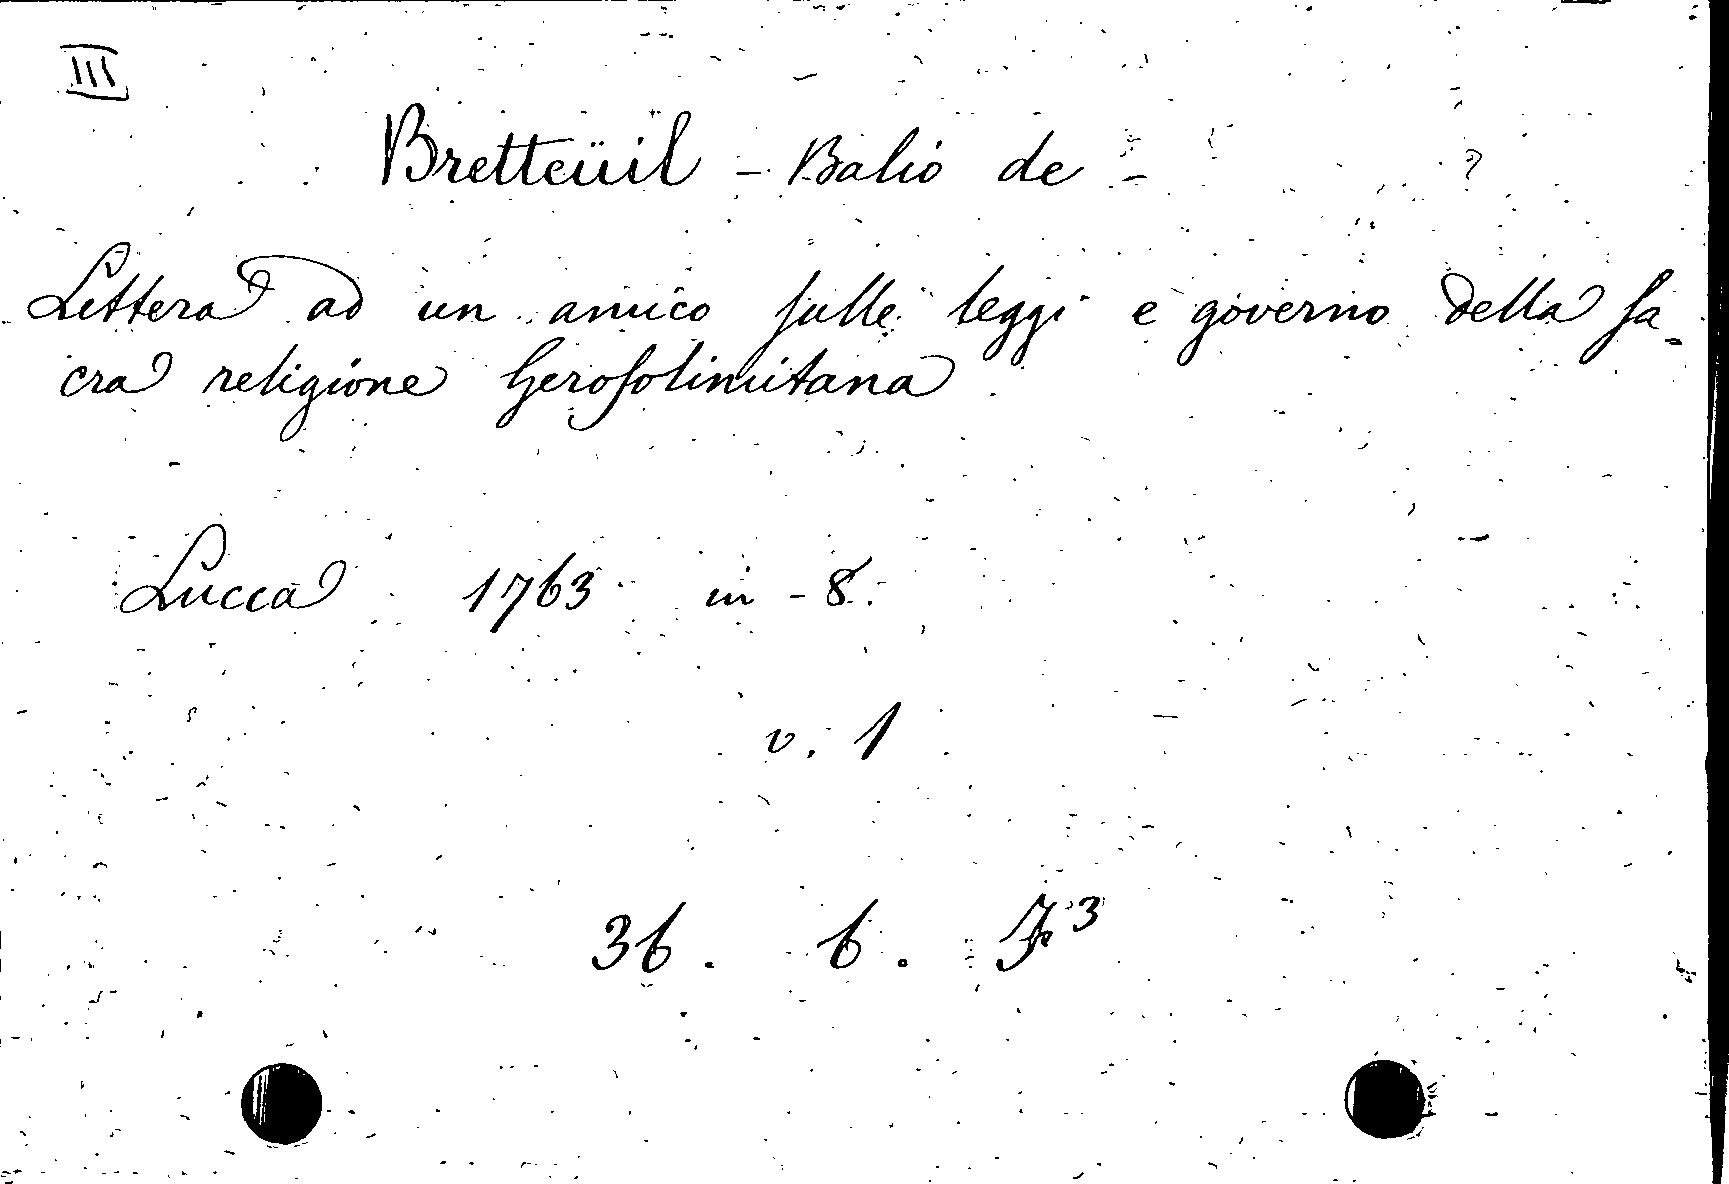 III
Bretteüil - Balió de -
Lettera ad un amico sulle leggi e governo della sa=
cra religione Gerosolimitana
Lucca 1763 in-8.
v. 1
36. 6. 3